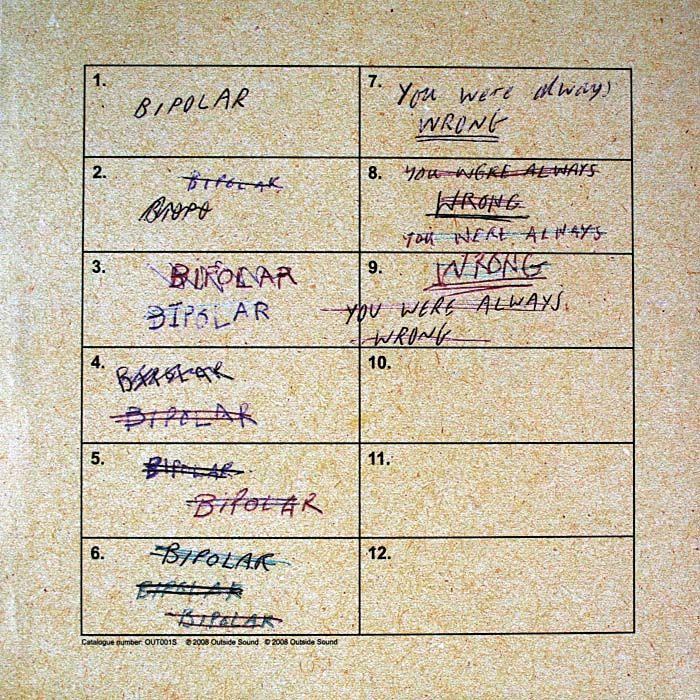 1.
BIPOLAR
2.
BIPOLAR
BIOPO
3.
BIPOLAR
BIPOLAR
4.
BIPOLAR
BIPOLAR
5.
BIPOLAR
BIPOLAR
6.
BIPOLAR
BIPOLAR
BIPOLAR
7.
You were always
WRONG
8.
YOU WERE ALWAYS
WRONG
YOU WERE ALWAYS
9.
WRONG
YOU WERE ALWAYS
WRONG
10.
11.
12.
Catalogue number: OUT001S ℗ 2008 Outside Sound © 2008 Outside Sound